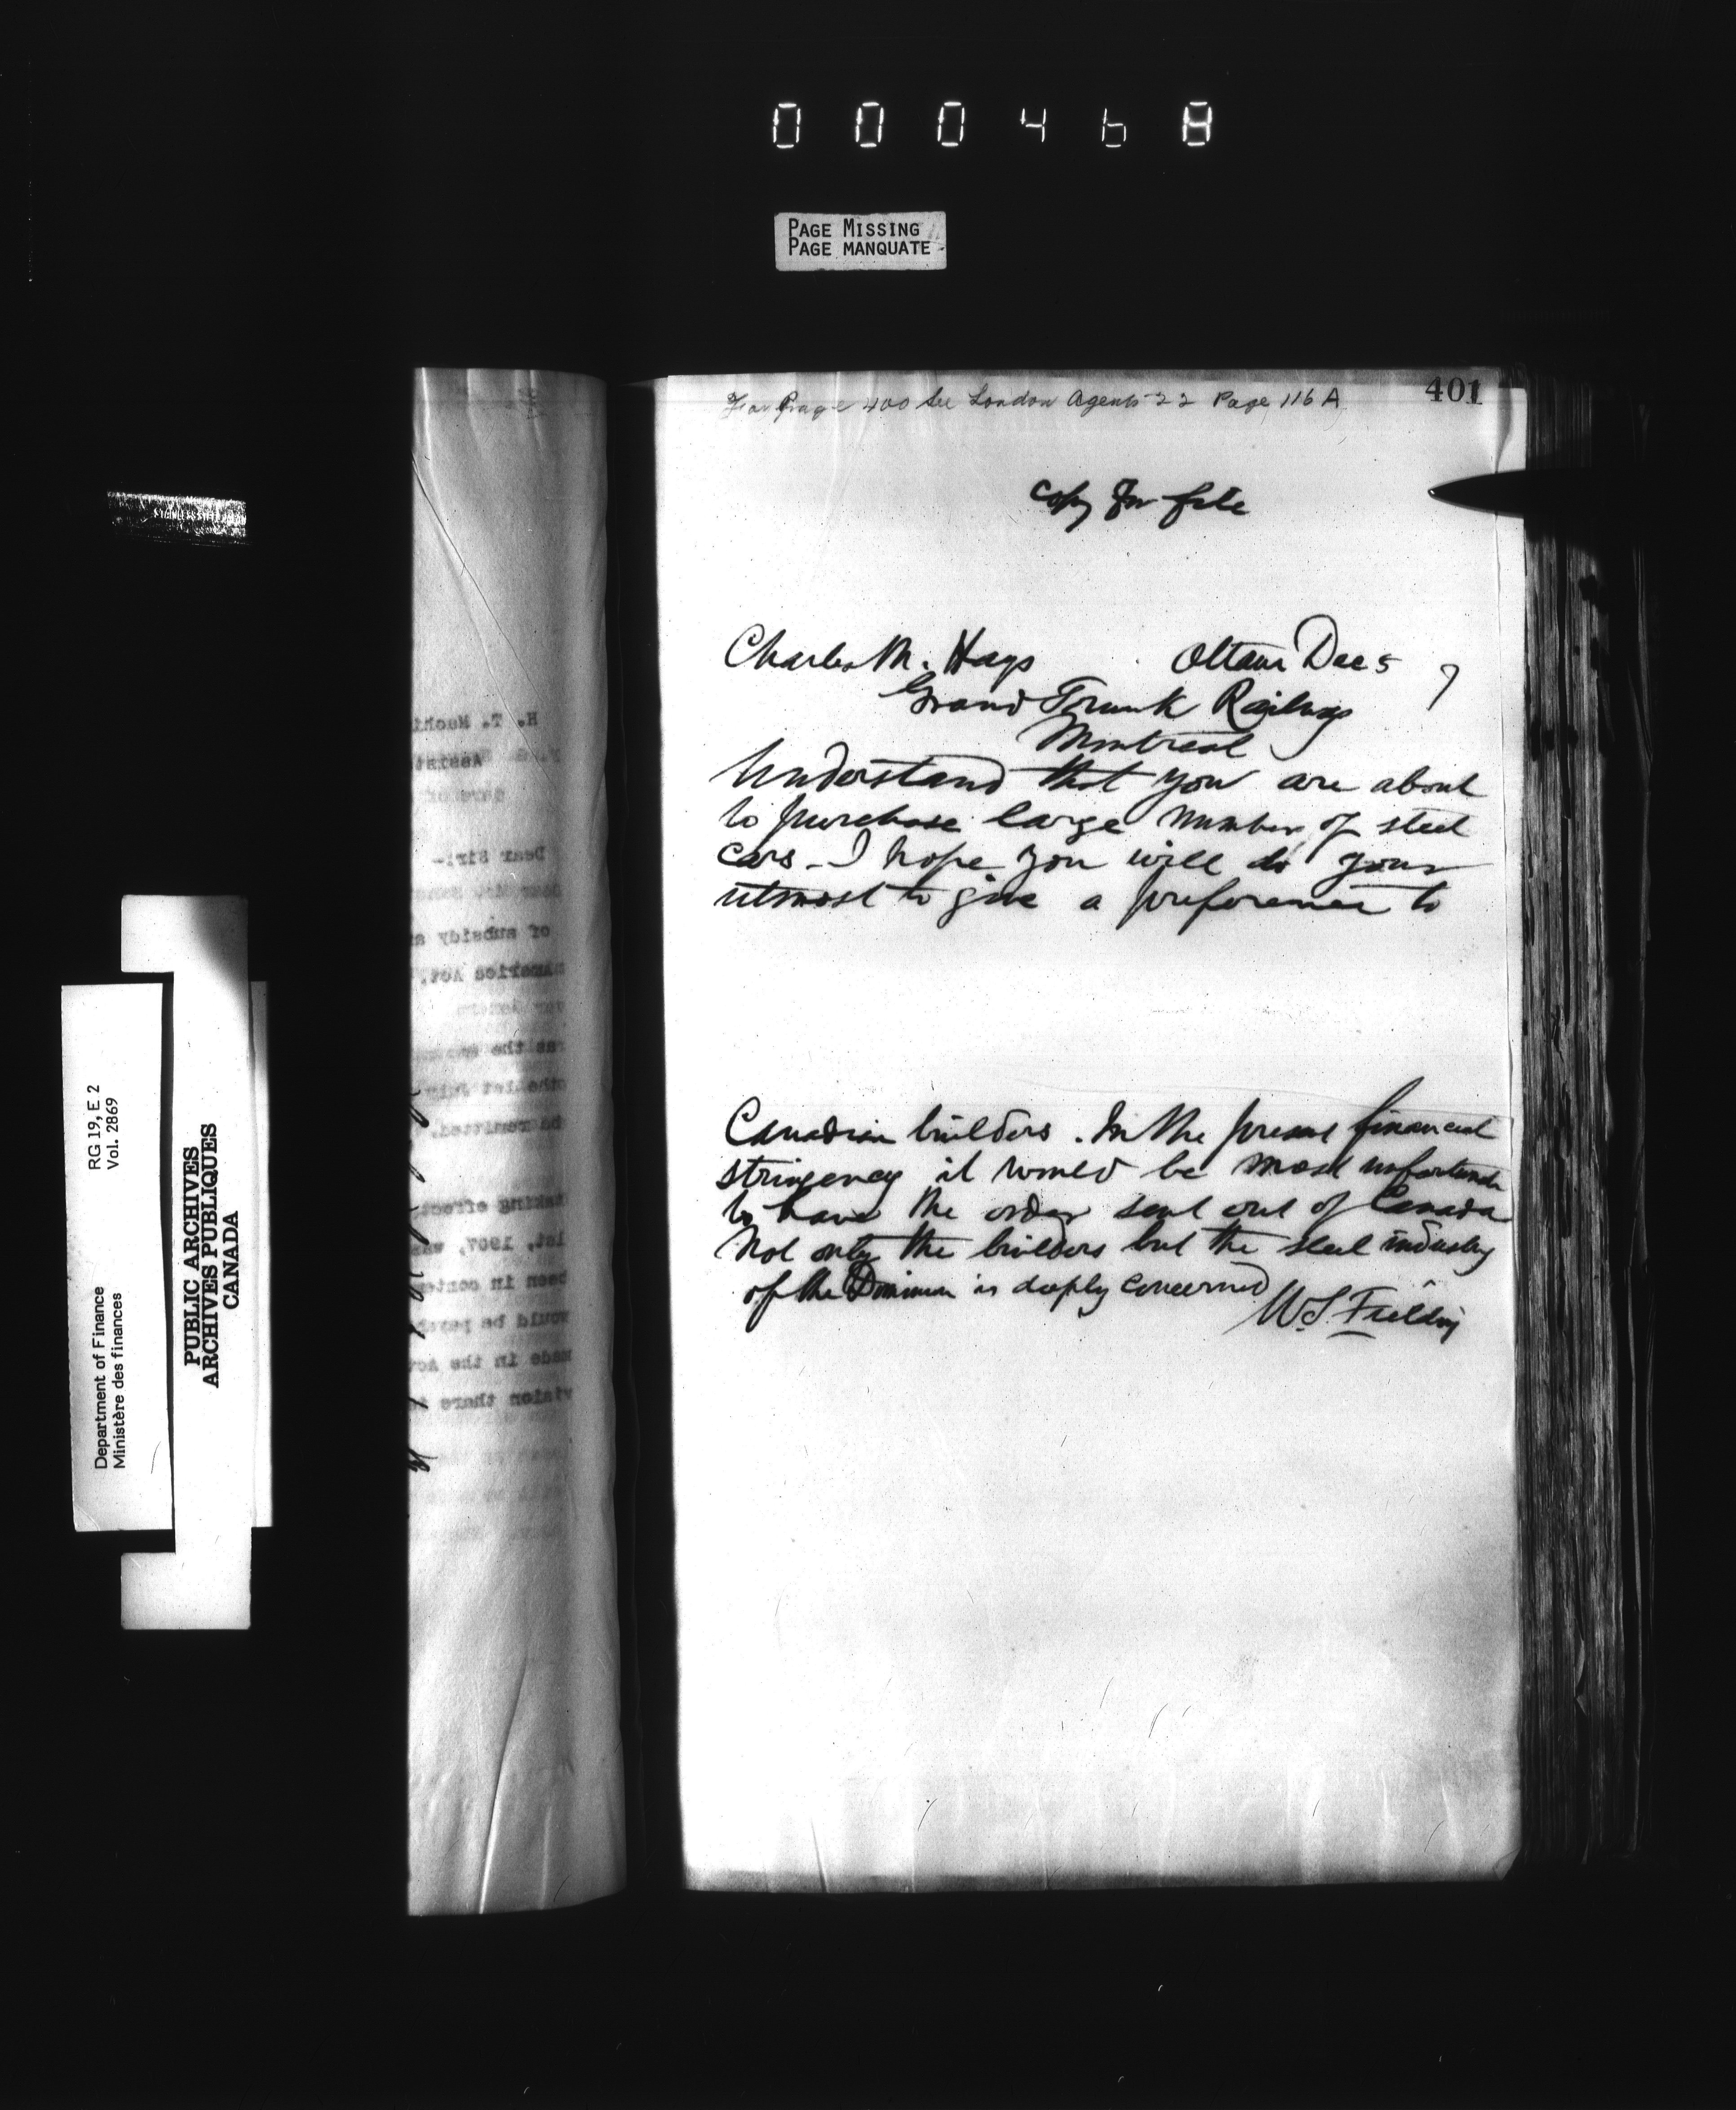 000468
PAGE MISSING
PAGE MANQUATE
401
For Page 400 See London Agents 22 Page 116 A
Copy for file
Charles M. Hays Ottawa Dec 5 7
Grand Trunk Railway
Montreal
Understand that you are about
to purchase large number of steel
cars - I hope you will do your
utmost to give a preference to
Canadian builders. In the present financial
stringency it would be most unfortunate
to have the order sent out of Canada
Not only the builders but the steel industry
of the Dominion is deeply concerned
W.S. Fielding
RG 19, E 2
Vol. 2869
Department of Finance
Ministère des finances
PUBLIC ARCHIVES
ARCHIVES PUBLIQUES
CANADA
H. T. Machi
Assist
Dear Sir:-
of subsidy a
America Act,
as the
the 1st July
be remitted.
taking effect
1st, 1907, was
been in
would be payab
made in the Ac
vision there